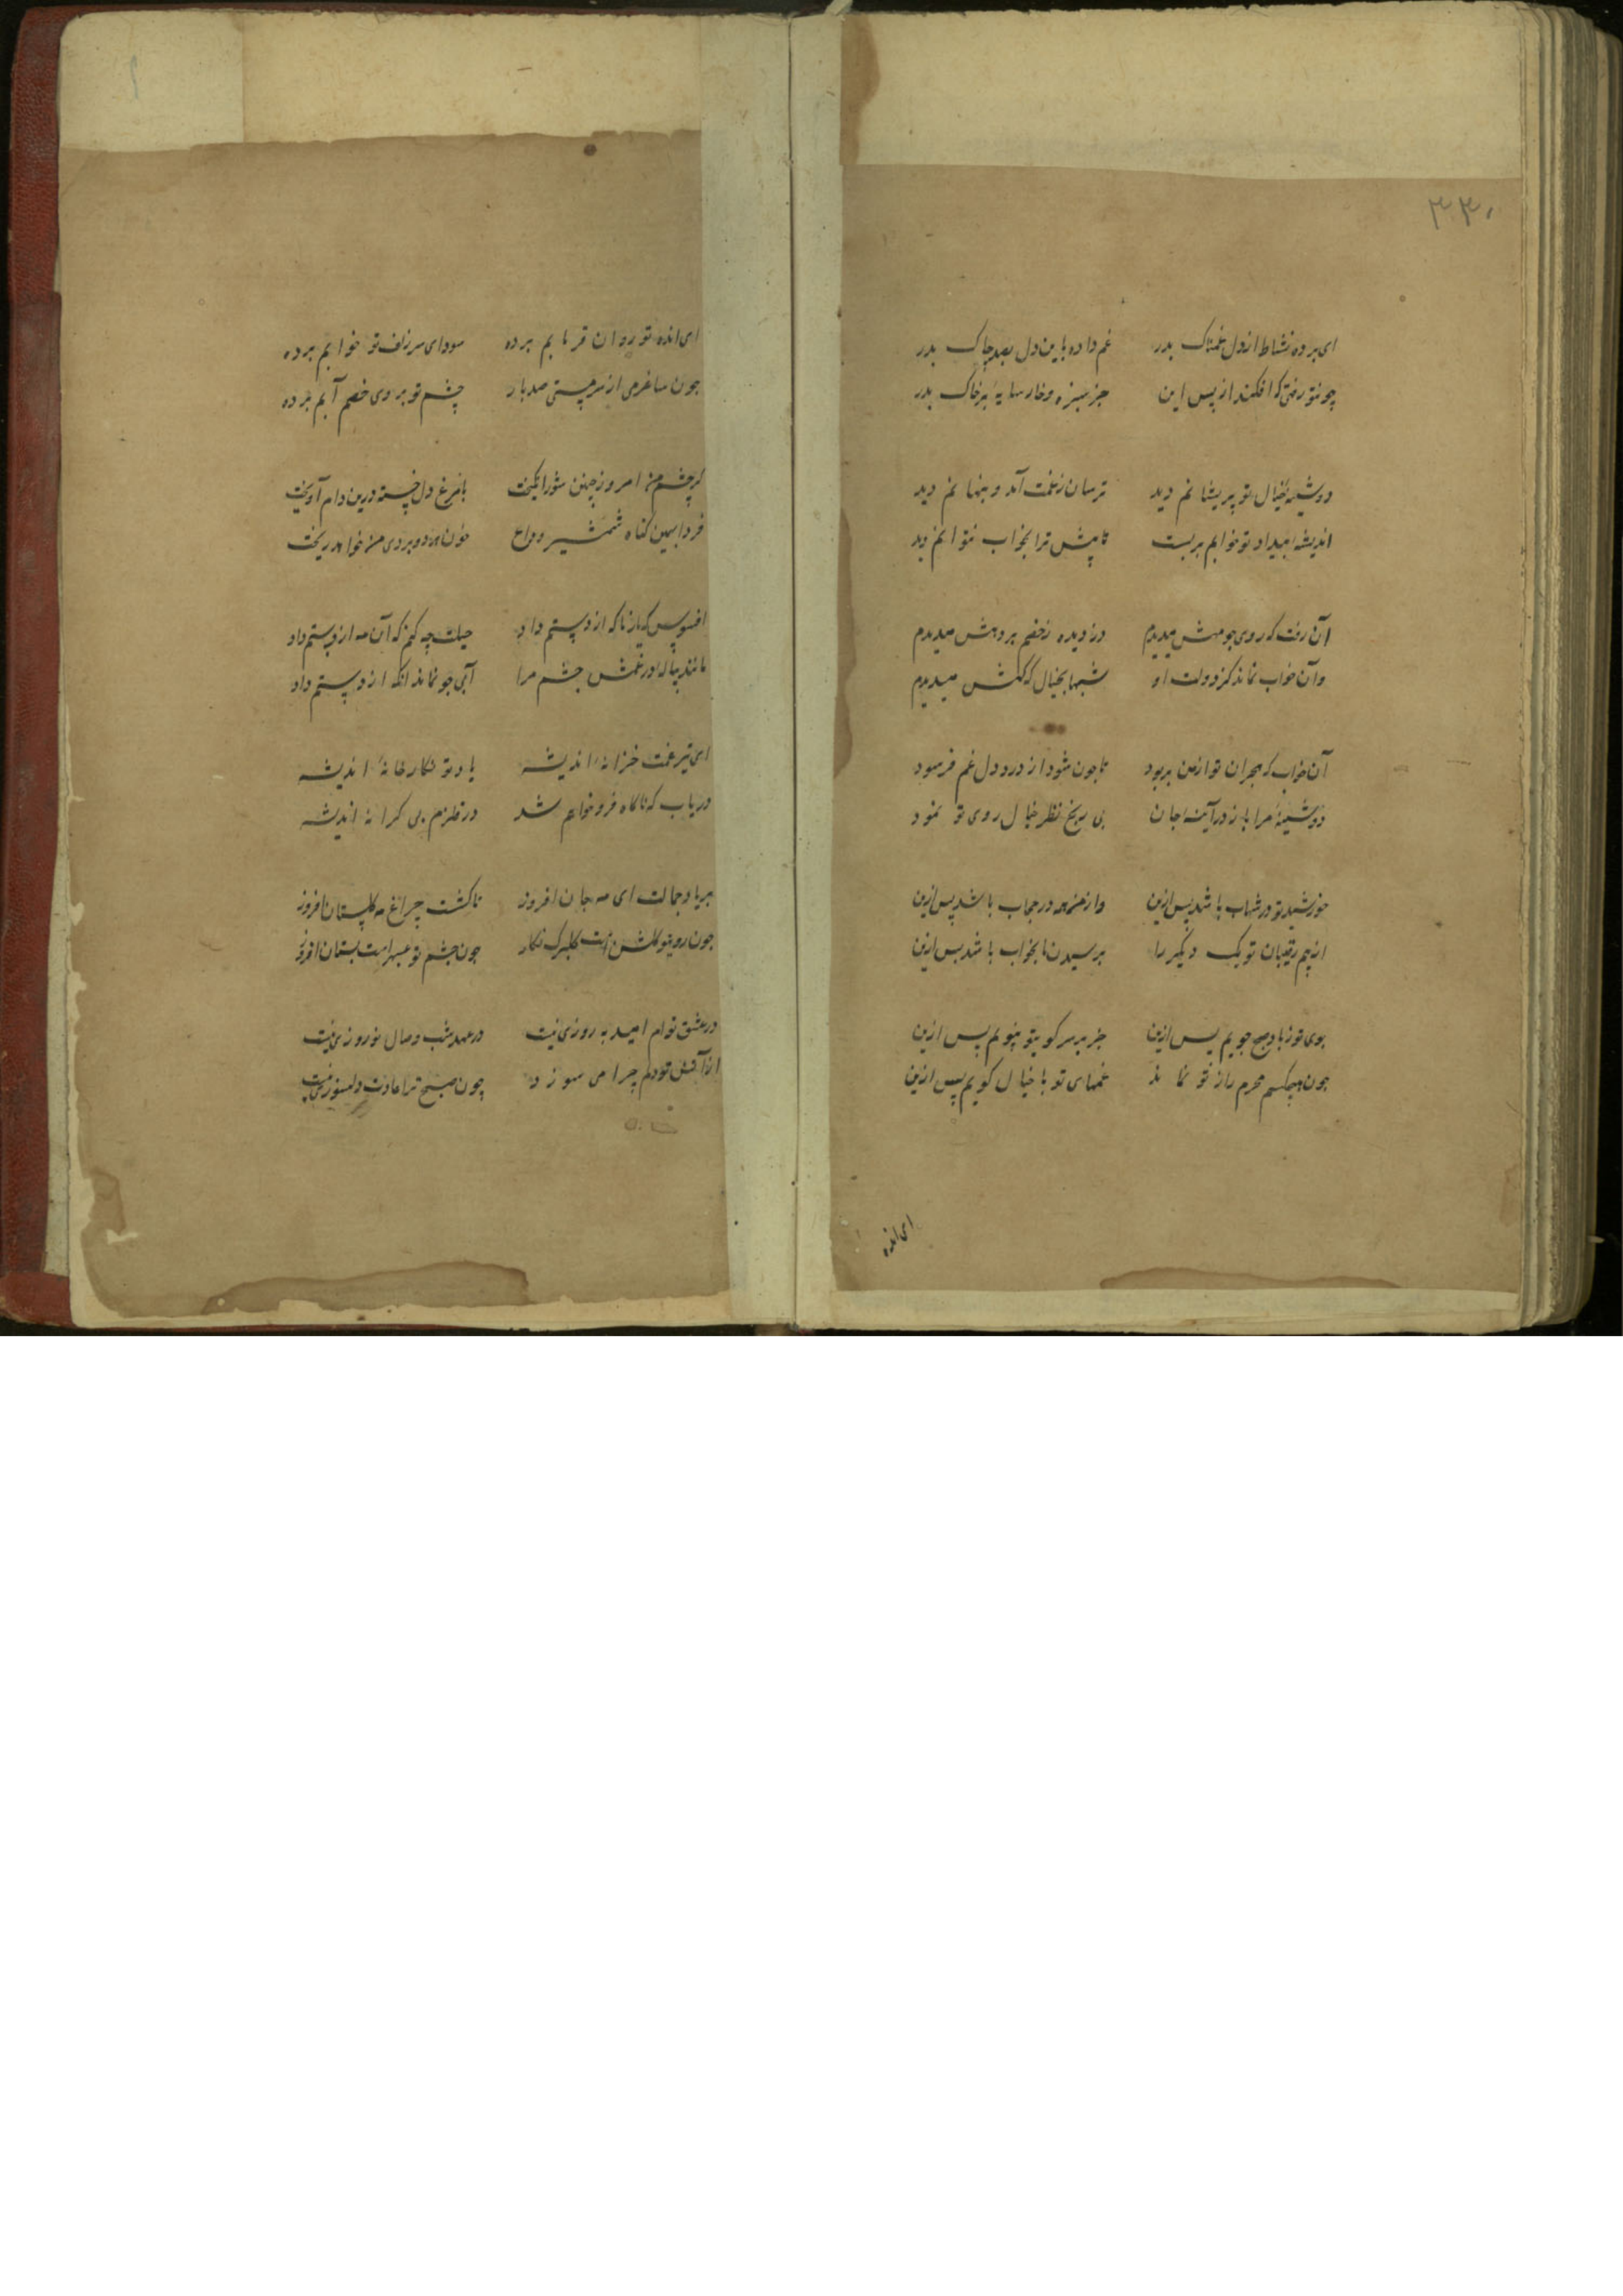 ۳۳۰
ای برده نشاط از دل غمناک پدر غم داده باین دل بصد چاک پدر
چو تو رفتی که افکند از پس این جز سبزه و خار سایه بر خاک پدر
دوشینه خیال تو پریشانم دید ترسان ز غمت آمد و پنهانم دید
اندیشه بیداد تو خوابم بربست تا پیش ترا بخواب نتوانم دید
آن رفت که روی چو مهش میدیدم دزدیده ز خصم بر رهش میدیدم
وآن خواب نماند کز دولت او شبها بخیال گه گهش میدیدم
آن خواب که هجران تو از من بربود تا چون شود از درد دل غم فرسود
دوشینه مرا باز در آینه جان بی رنج نظر خیال روی تو نمود
خورشید تو در شهاب باشد پس ازین واز من مه در حجاب باشد پس ازین
از بیم رقیبان تو یک دیگر را پرسیدن ما بخواب باشد پس ازین
بوی تو ز باد صبح جویم پس ازین جز بر سر کوی تو نپویم پس ازین
چون هیچکسم محرم راز تو نماند غمهای تو با خیال گویم پس ازین
ای انده
ای انده تو روان قربابم برده سودای سر زلف تو خوابم برده
چون ساغر می از سر مستی صد بار چشم تو بروی خصم آبم برده
گر چشم من امروز چنین شور انگیخت با مرغ دل خسته درین دام آویخت
فردا بهمین گناه شمشیر وداع خون هر دو بروی من خواهد ریخت
افسوس که یار ناگه از دستم داد حیلت چه کنم که آن مه از دستم داد
مانند پیاله در غمش چشم مرا آبی چو نماند انگه از دستم داد
ای تیر غمت خزانه اندیشه یاد تو نگارخانه اندیشه
دریاب که ناگاه فرو خواهم شد در قلزم بی کرانه اندیشه
بر یاد جمالت ای مه جان افروز تا گشت چراغ مه گلستان افروز
چون روی تو گلشن است گلبرگ نگار چون چشم تو عبهرست بستان افروز
در عشق توام امید به روزی نیست در عهد شب وصال نوروزی نیست
از آتش تو دلم چرا می سوزد چون صبح ترا عادت دلسوزی نیست